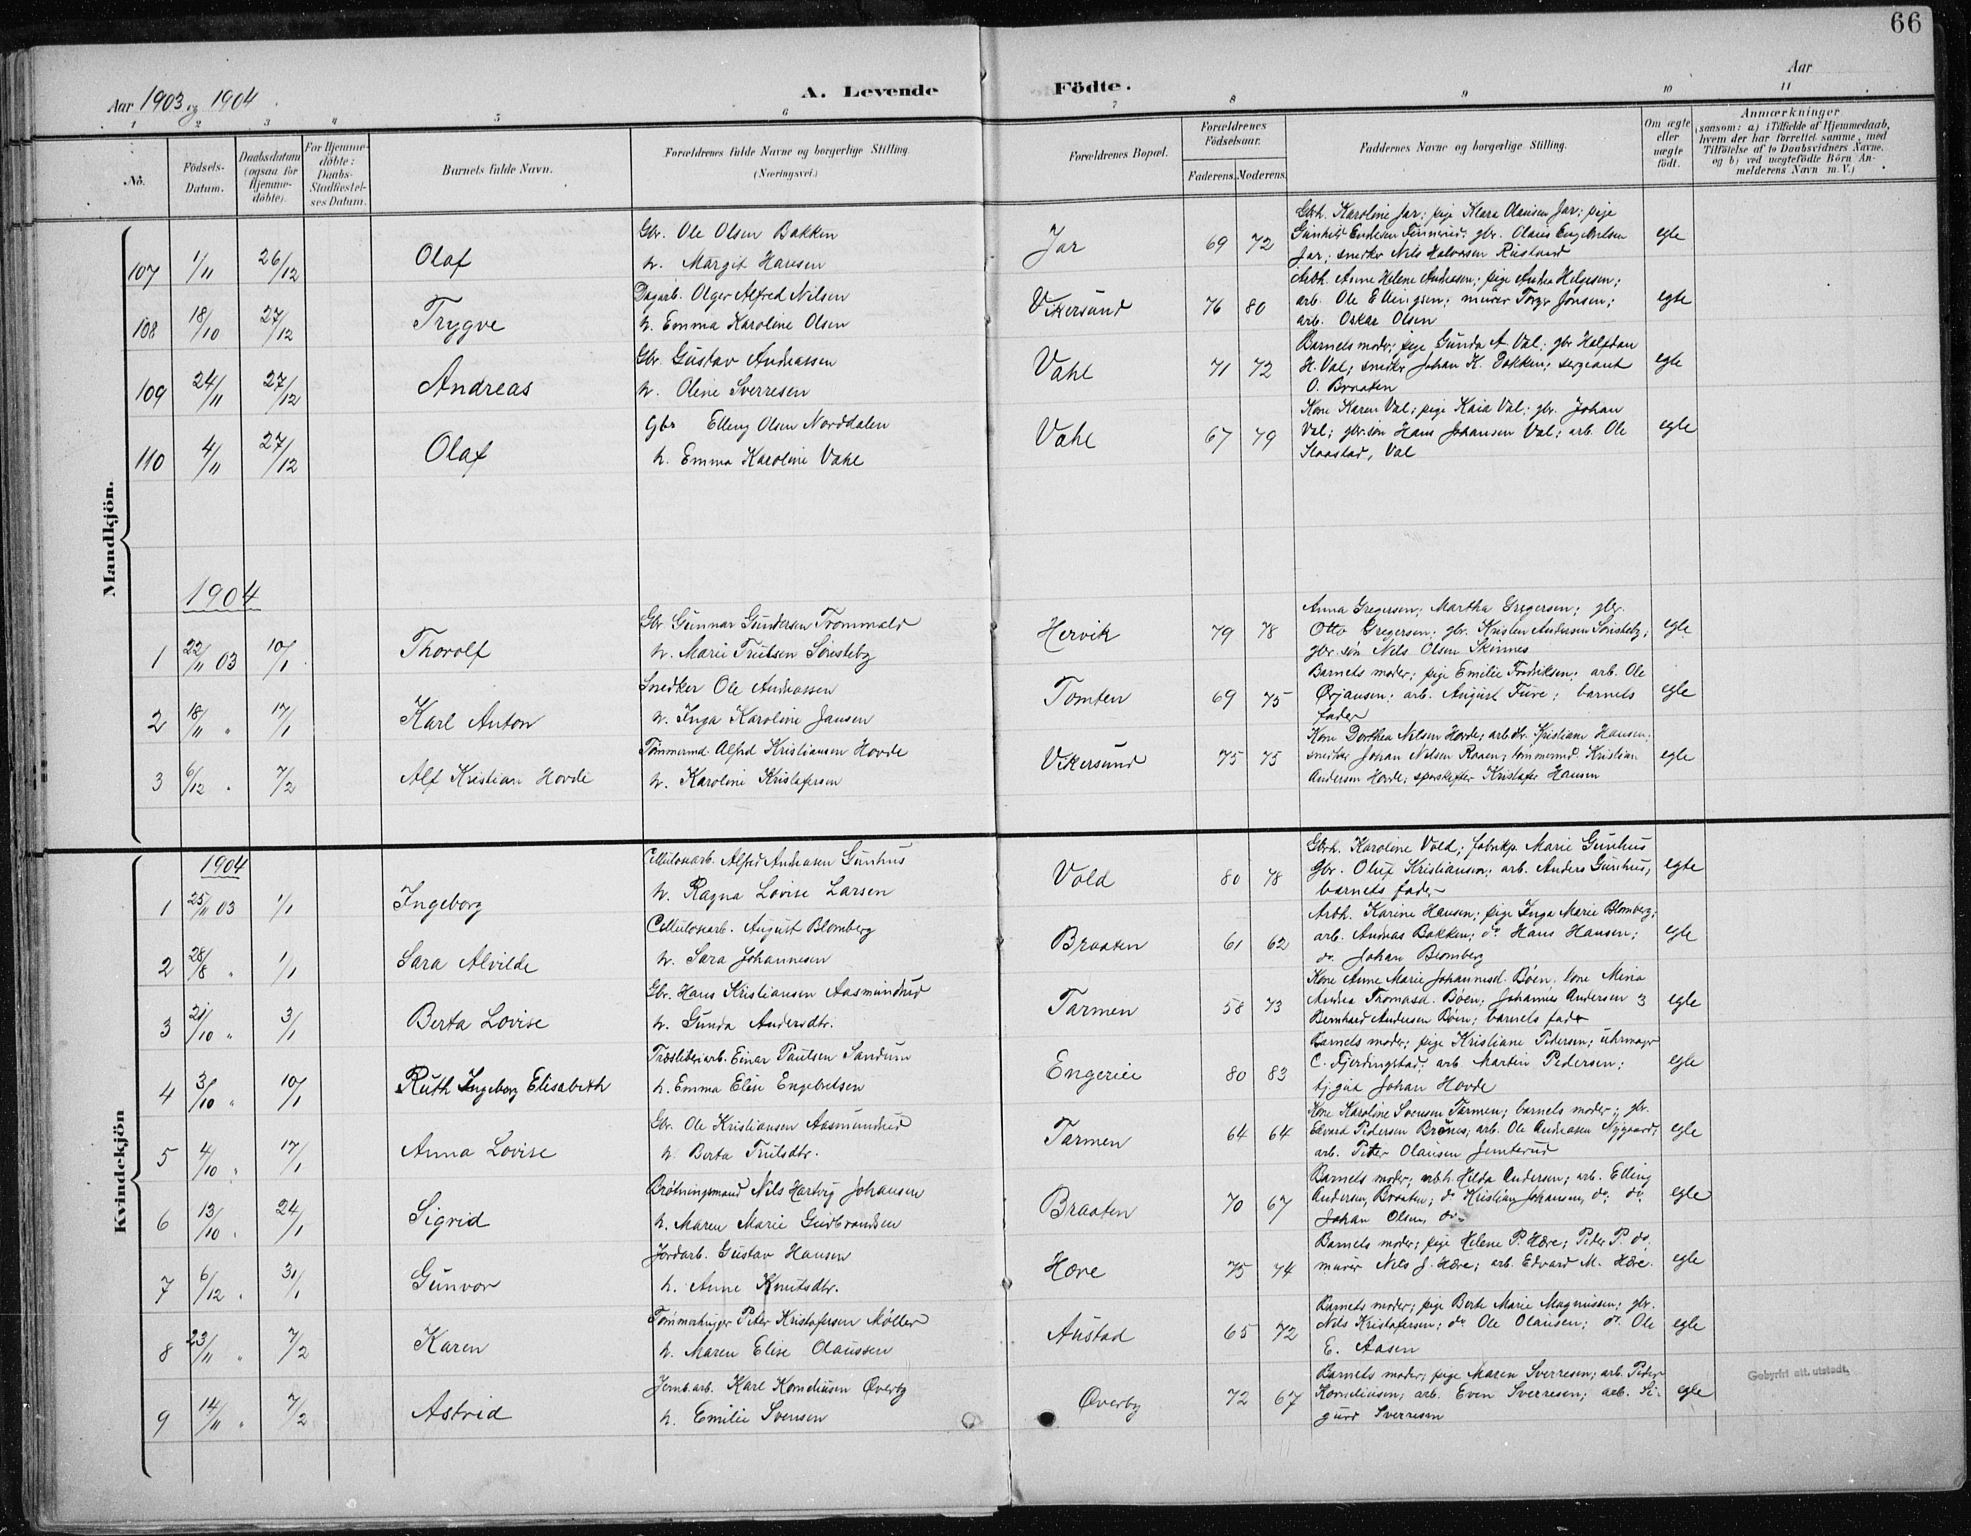 66
Aar 1903 og 1904
A. Levende
Födte.
Aar
1 2 3 4 5 6 7 8 9 10 11
No.
Födsels-Datum.
Daabsdatum (ogsaa for Hjemme-döbte).
For Hjemme-döbte: Daabs-Stadfæstel-ses Datum.
Barnets fulde Navn.
Forældrenes fulde Navne og borgerlige Stilling (Næringsvei.)
Forældrenes Bopæl.
Forældrenes Födselsaar.
Faderens. Moderens.
Faddernes Navne og borgerlige Stilling.
Om ægte eller uægte födt.
Anmærkninger
(saasom: a) i Tilfælde af Hjemmedaab,
hvem der har forrettet samme, med
Tilföielse af to Daabsvidners Navne.
og b) ved uægtefödte Börn An-
melderens Navn m. V.)
Mandkjön.
107 1/11 26/12 Olaf
Gbr. Ole Olsen Bakken
h. Margit Hansen
Jar 69 72
Gbrh. Karoline Jar; pige Klara Olausen Jar; pige
Gunhild Endresen Finnerud; gbr. Olaus Engebretsen
Jar; snedker Nils Halvorsen Rustand
egte
108 18/10 27/12 Trygve
Dagarb. Olger Alfred Nilsen
h. Emma Karoline Olsen
Vikersund 76 80
Arbh. Anne Helene Andreasen; pige Andrea Helgesen;
arb. Ole Ellingsen; murer Torger Jonsen;
arb. Oskar Olsen
egte
109 24/11 27/12 Andreas
Gbr. Gustav Andreassen
h. Oline Sverresen
Vahl 71 72
Barnets moder; pige Gunda A. Val; gbr Halfdan
H. Val; snedker Johan K. Bakken; sergeant
O. Braaten
egte
110 4/11 27/12 Olaf
Gbr Elling Olsen Norddalen
h. Emma Karoline Vahl
Vahl 67 79
Kone Karen Val; pige Kaia Val; gbr. Johan
Val; gbr.søn Hans Johansen Val; arb. Ole
Slaastad, Val
egte
1904
1 22/11 03 10/1 Thorolf
Gbr Gunnar Gundersen Trommald
h. Marie Trulsen Sønsteby
Hervik 79 78
Anna Gregersen; Martha Gregersen; gbr.
Otto Gregersen; gbr. Kristen Andersen Sønsteby;
gbr. søn Nils Olsen Skinnes
egte
2 18/11 " 17/1 Karl Anton
Snedker Ole Andreassen
h. Inga Karoline Jansen
Tomten 69 75
Barnets moder; pige Emilie Fredriksen; arb. Ole
Ørjansen; arb. August Fure; barnets
fader
egte
3 6/12 " 7/2 Alf Kristian Hovde
Tømmermd. Alfred Kristiansen Hovde
h. Karoline Kristofersen
Vikersund 75 75
Kone Dorthea Nilsen Hovde; arbeidr. Kristiane Hansen;
snedker Johan Nilsen Raaen; tømmermd. Kristian
Andersen Hovde; sporskifter Kristofer Hansen
egte
Kvindekjön
1904
1 25/11 03 1/1 Ingeborg
Cellulosearb. Alfred Andreasen Gunhus
h. Ragna Lovise Larsen
Vold 80 78
Gbrh. Karoline Vold; fabrikp. Marie Gunhus
Gbr. Oluf Kristiansen; arb. Anders Gunhus;
barnets fader
egte
2 28/8 " 1/1 Sara Alvilde
Cellulosearb. August Blomberg
h. Sara Johannesen
Braaten 61 62
Arbh. Karine Hansen; pige Inga Marie Blomberg;
arb. Andreas Bakken; do Hans Hansen;
do. Johan Blomberg
egte
3 21/10 " 3/1 Berta Lovise
Gbr. Hans Kristiansen Aasmundrud
h. Gunda Andersdtr.
Tarmen 58 73
Kone Anne Marie Johannesd. Bøen, kone Mina
Andrea Thomasd. Bøen; Johannes Andersen 3
Bernhard Andersen Bøen; barnets fader
egte
4 3/10 " 10/1 Ruth Ingeborg Elisabeth
Træsliberiarb. Einar Paulsen Sandum
h. Emma Elise Engebretsen
Engerlie 80 83
Barnets moder; pige Kristiane Pedersen; uhrmager
C. Fjerdingstad; arb Martin Pedersen;
tj.gut Johan Hovde
egte
5 4/10 " 17/1 Anna Lovise
Gbr. Ole Kristiansen Aasmundrud
h. Berta Trulsdtr.
Tarmen 64 64
Kone Karoline Svensen Tarmen; barnets moder; gbr.
Edvard Pedersen Brones; arb. Ole Andreasen Nygaard;
arb. Peter Olausen Jemterud
egte
6 13/10 " 24/1 Sigrid
Brøtningsmand Nils Hartvig Johansen
h. Maren Marie Gudbrandsen
Braaten 70 67
Barnets moder; arbh. Hilda Andersen; arb. Elling
Andersen, Braaten; do Kristian Johansen, do; do.
Johan Olsen, do.
egte
7 6/12 " 31/1 Gunvor
Jordarb. Gustav Hansen
h. Anne Knutsdtr.
Hære 75 74
Barnets moder; pige Helene P. Hære; Peder P. do;
murer Nils J. Hære; arb. Edvard M. Hære.
egte
8 23/11 " 7/2 Karen
Tømmerhugger Peter Kristofersen Møller
h. Maren Elise Olaussen
Austad 65 72
Barnets moder; pige Berte Marie Magnussen; gbr.
Nils Kristofersen; do Ole Olausen; do. Ole
E. Aasen
egte
9 14/11 " 7/2 Astrid
Jernb.arb. Karl Korneliusen Øverby
h. Emilie Svensen
Øverby 72 67
Barnets moder; pige Maren Sverresen; arb. Peder
Korneliusen; arb. Even Sverresen; arb. Si-
gurd Sverresen
egte
Gebyrfri att. utstedt.